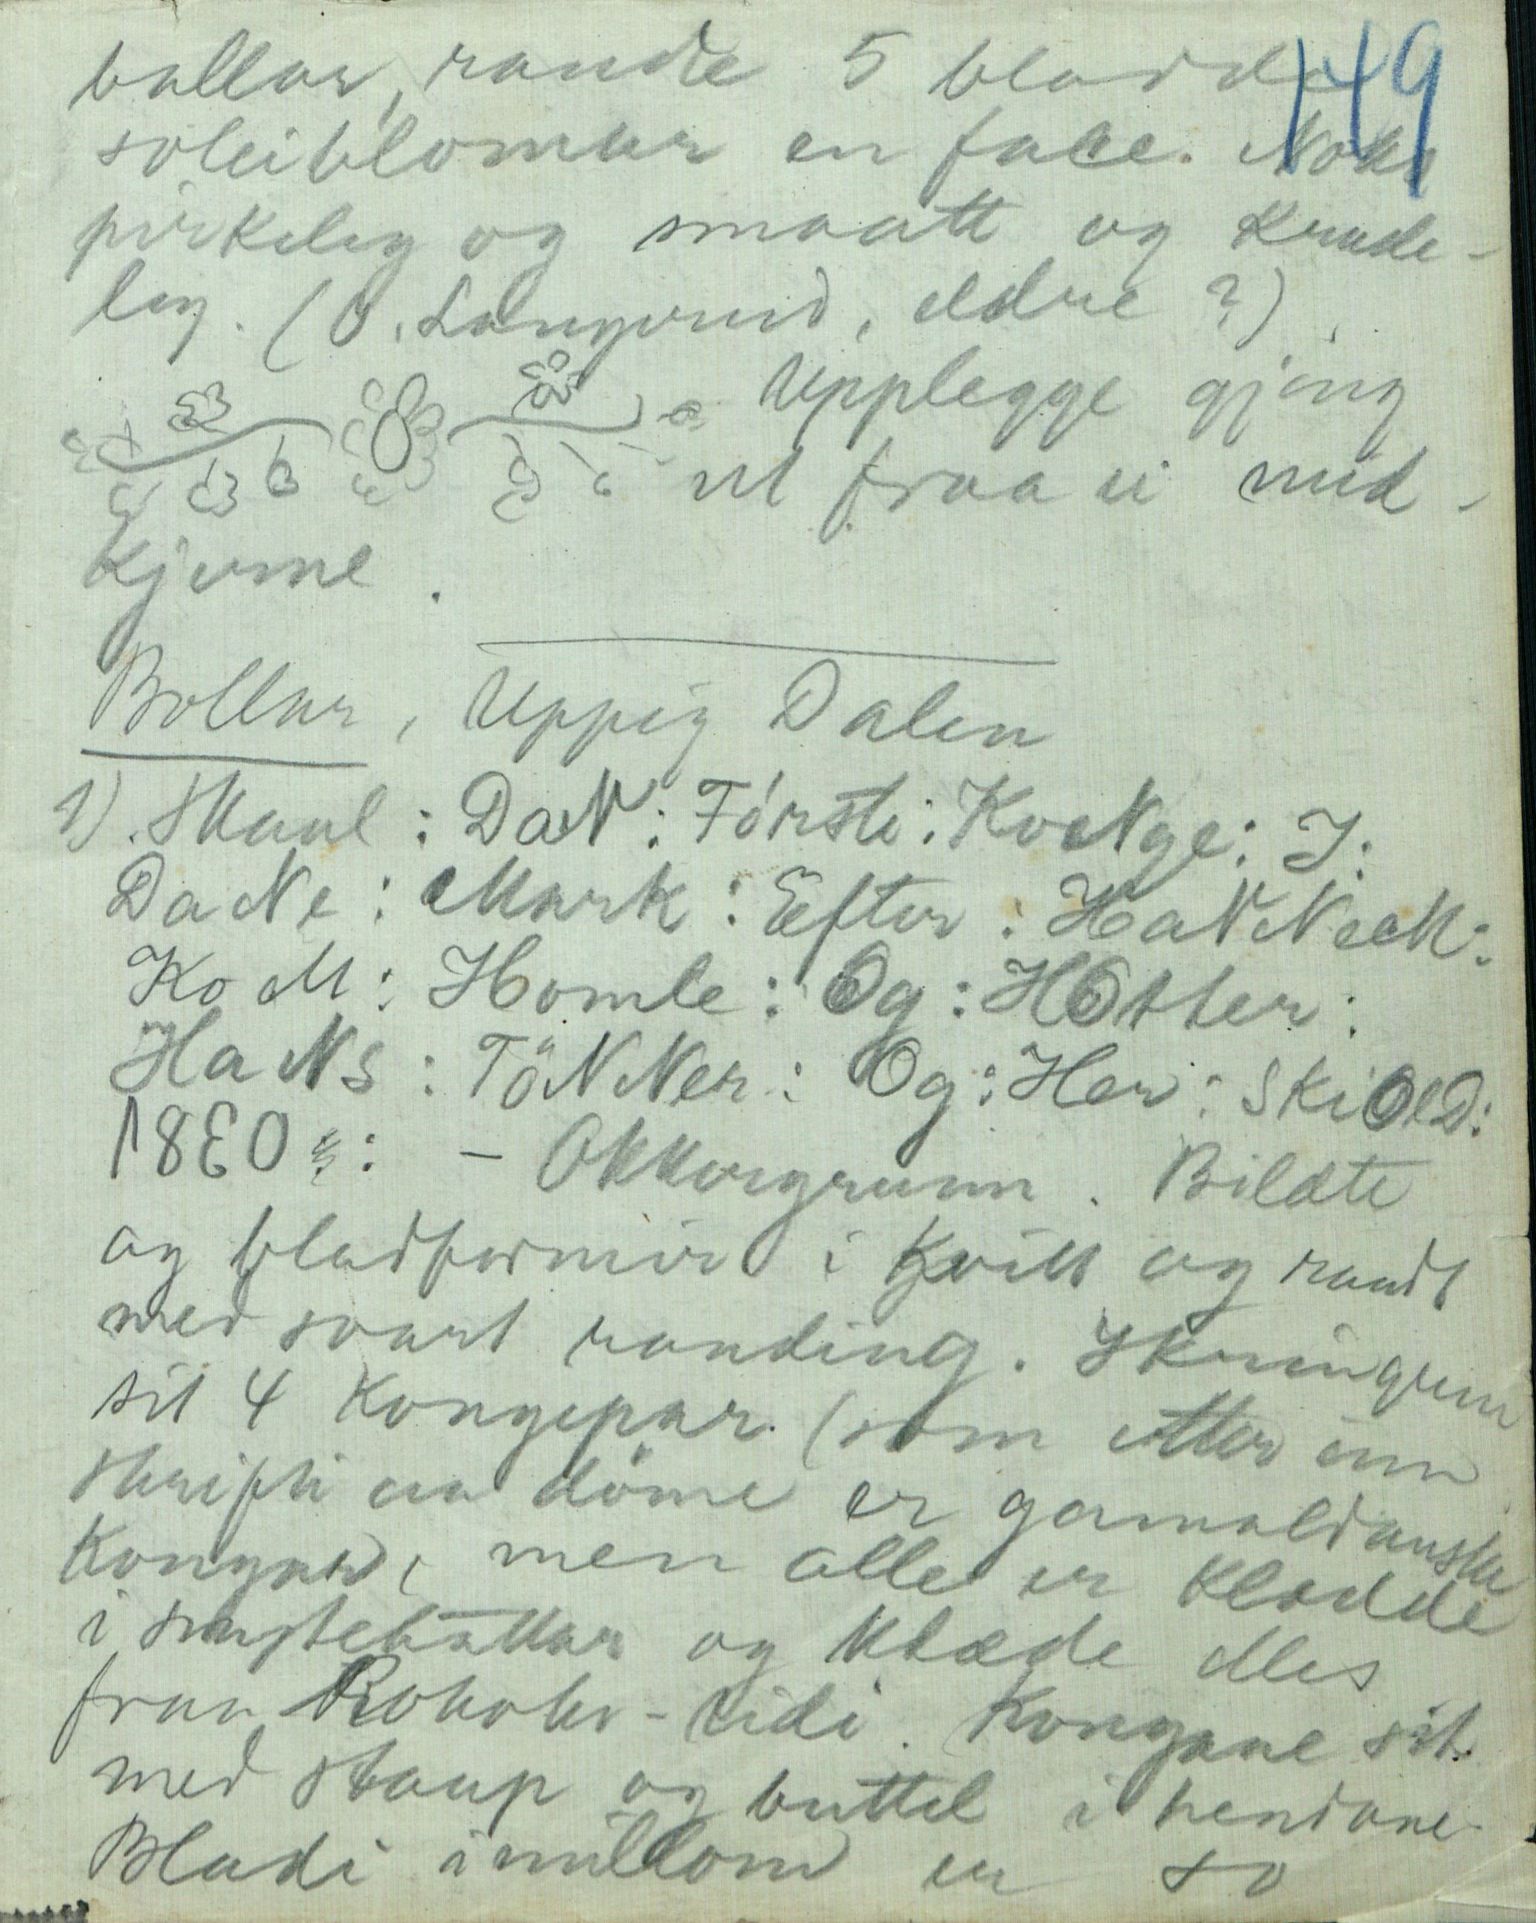 149
ballar, raude 5 bladda
soleiblomar en face. Noko
pirkeleg og smaatt og krude-
leg. (O. Langerud, eldre?)
Upplegge gjeng
ut fraa ei mid-
kjerne.
Bollar, Uppig Dalen
1). Skaal: DaN: Förste: KoNge: I:
DaNe: Mark: Efter: HaNNeM:
KoM: Homle: Og: HOtter:
HaNs: TöNNer: Og: Her: SkiOlD:
1830: - Okkergrunn. Bildte
og bladformer i kvitt og raudt
med svart randing. Ikringum
sit 4 Kongepar (som etter inn
skrifti aa döme er gamaldanske
Kongar, men alle er klædde
i snytehattar og klæde elles
fraa Rokoko-tidi. Kongane sit
med staup og buttel i hendane
Bladi imillom er so